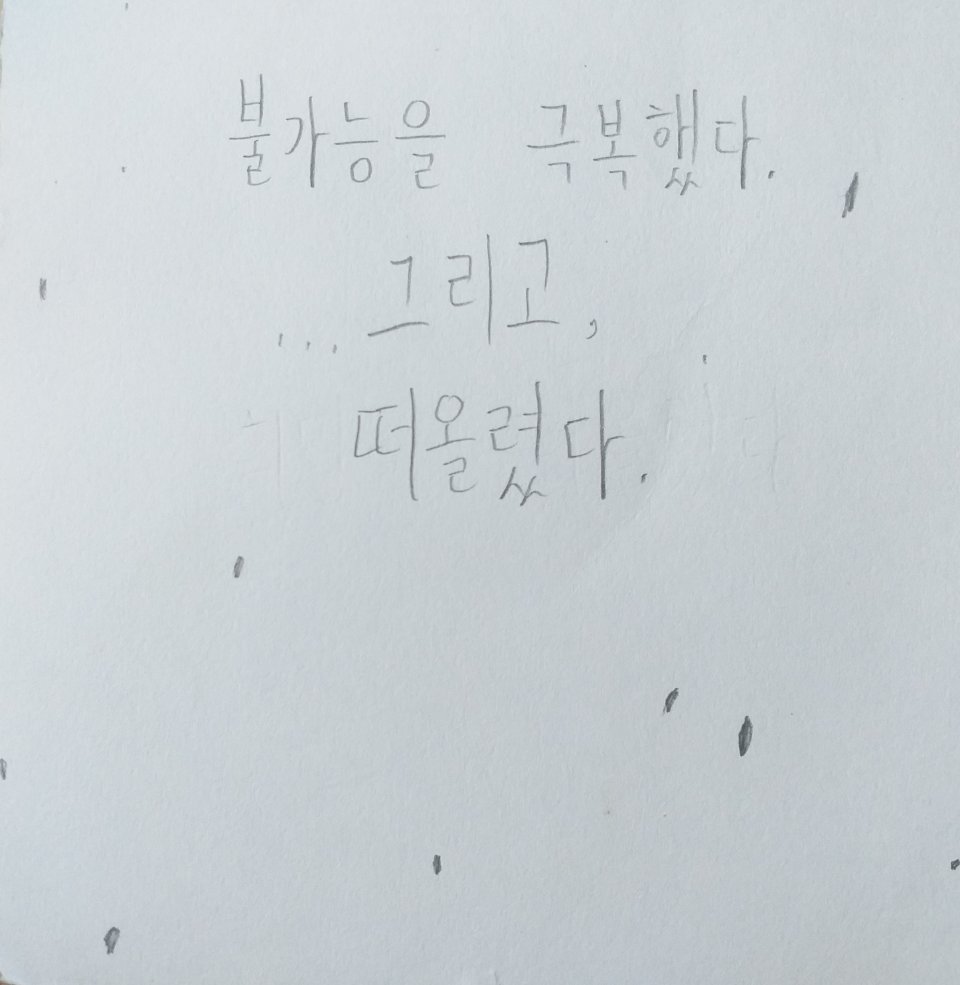 불가능을 극복했다.
...그리고,
떠올렸다.